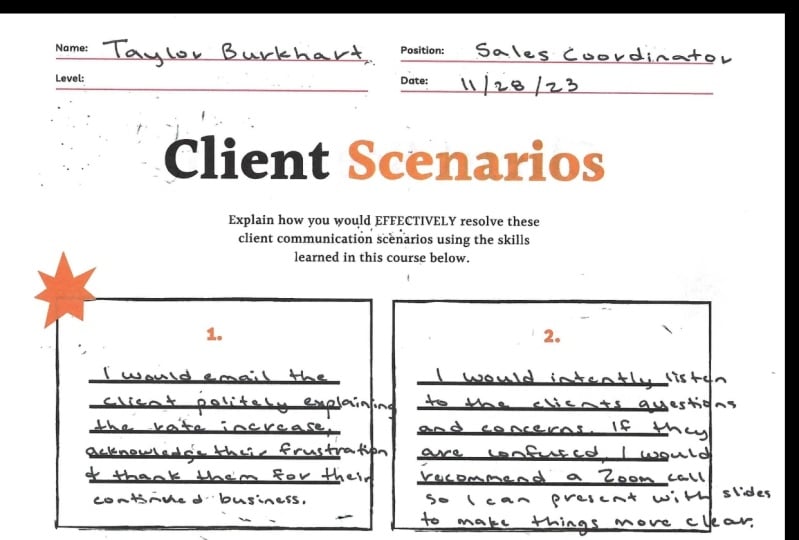 Name: Taylor Burkhart Position: Sales Coordinator
Level: Date: 11/28/23
Client Scenarios
Explain how you would EFFECTIVELY resolve these
client communication scenarios using the skills
learned in this course below.
1.
I would email the
client politely explaining
the rate increase,
acknowledge their frustration
& thank them for their
continued business.
2.
I would intently listen
to the clients questions
and concerns. If they
are confused, I would
recommend a Zoom call
so I can present with slides
to make things more clear.